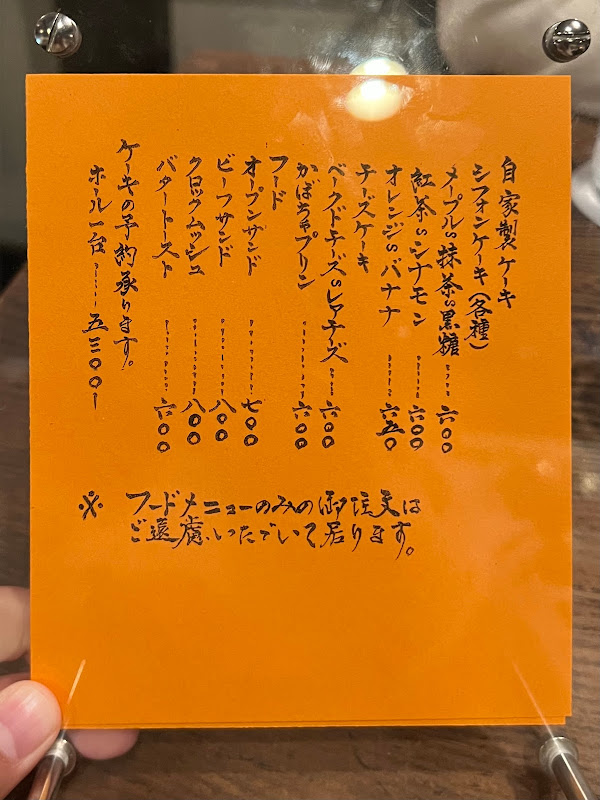 自家製ケーキ
シフォンケーキ(各種)
メープル〃抹茶〃黒糖……六〇〇
紅茶〃シナモン……六〇〇
オレンジ〃バナナ……六五〇
チーズケーキ
ベークドチーズ〃レアチーズ……六〇〇
かぼちゃプリン……六〇〇
フード
オープンサンド……七〇〇
ビーフサンド……八〇〇
クロックムッシュ……八〇〇
バタートースト……六〇〇
ケーキの予約承ります。
ホール一台……五三〇〇ー
※ フードメニューのみの御注文は
ご遠慮いただいて居ります。